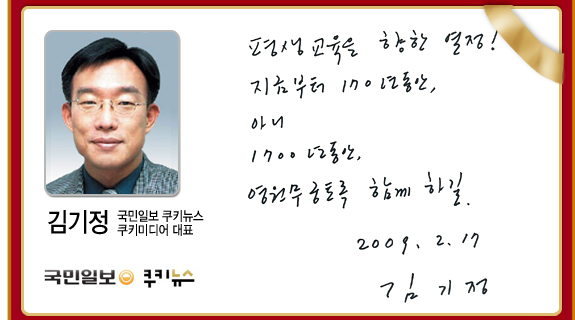 평생교육을 향한 열정!
지금부터 170년동안,
아니
1700년동안,
영원무궁토록 함께 하길.
2009. 2. 17
김기정
김기정 국민일보 쿠키뉴스
쿠키미디어 대표
국민일보 쿠키뉴스